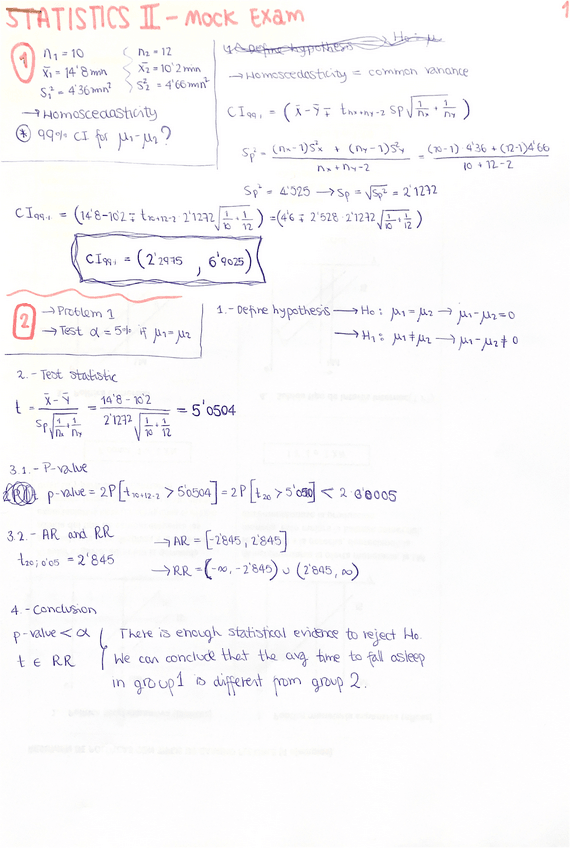 STATISTICS II - Mock Exam
1
1
n₁ = 10
n₂ = 12
x̄₁ = 14'8 mn
x̄₂ = 10'2 mn
S₁² = 4'36 mn²
S₂² = 4'66 mn²
→ Homoscedasticity
* 99% CI for μ₁-μ₂?
→ Homoscedasticity = common variance
CI₉₉.₁ = (x̄-ȳ ∓ t nx+ny-2 Sp √(1/nx + 1/ny))
Sp² = ((nx-1)S²x + (ny-1)S²y) / (nx+ny-2) = ((10-1)·4'36 + (12-1)4'66) / (10+12-2)
Sp² = 4'525 → Sp = √Sp² = 2'1272
CI₉₉.₁ = (14'8-10'2 ∓ t₁₀₊₁₂₋₂ 2'1272 √(1/10 + 1/12)) = (4'6 ∓ 2'528 · 2'1272 √(1/10 + 1/12))
CI₉₉.₁ = (2'2975 , 6'9025)
2
→ Problem 1
→ Test α = 5% if μ₁ = μ₂
1.- Define hypothesis → H₀: μ₁ = μ₂ → μ₁-μ₂ = 0
→ H₁: μ₁ ≠ μ₂ → μ₁-μ₂ ≠ 0
2.- Test statistic
t = (x̄-ȳ) / (Sp √(1/nx + 1/ny)) = (14'8-10'2) / (2'1272 √(1/10 + 1/12)) = 5'0504
3.1.- P-value
p-value = 2P[t₁₀₊₁₂₋₂ > 5'0504] = 2P[t₂₀ > 5'050] < 2 0'0005
3.2.- AR and RR
→ AR = [-2'845, 2'845]
t₂₀;₀'₀₅ = 2'845
→ RR = (-∞, -2'845) ∪ (2'845, ∞)
4.- Conclusion
p-value < α
There is enough statistical evidence to reject H₀.
t ∈ RR
We can conclude that the avg time to fall asleep
in group 1 is different from group 2.